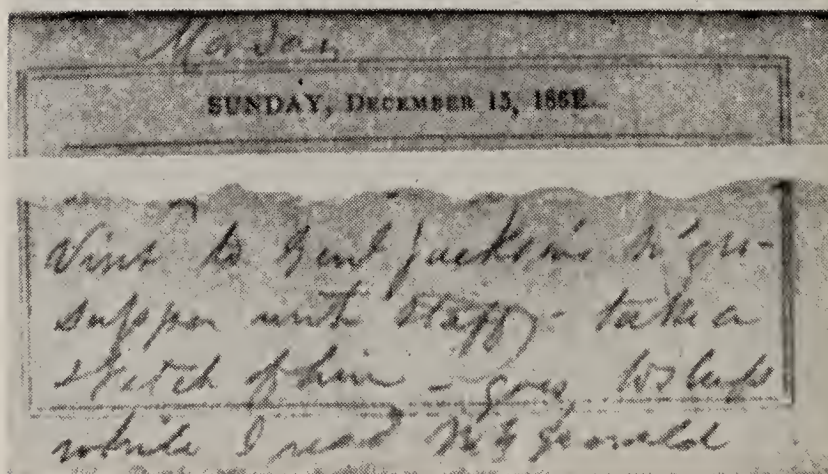 Monday
SUNDAY, DECEMBER 15, 186
Visit to Genl Jackson's
supper with Staff - take a
sketch of him - goes to sleep
while I read N Y Herald